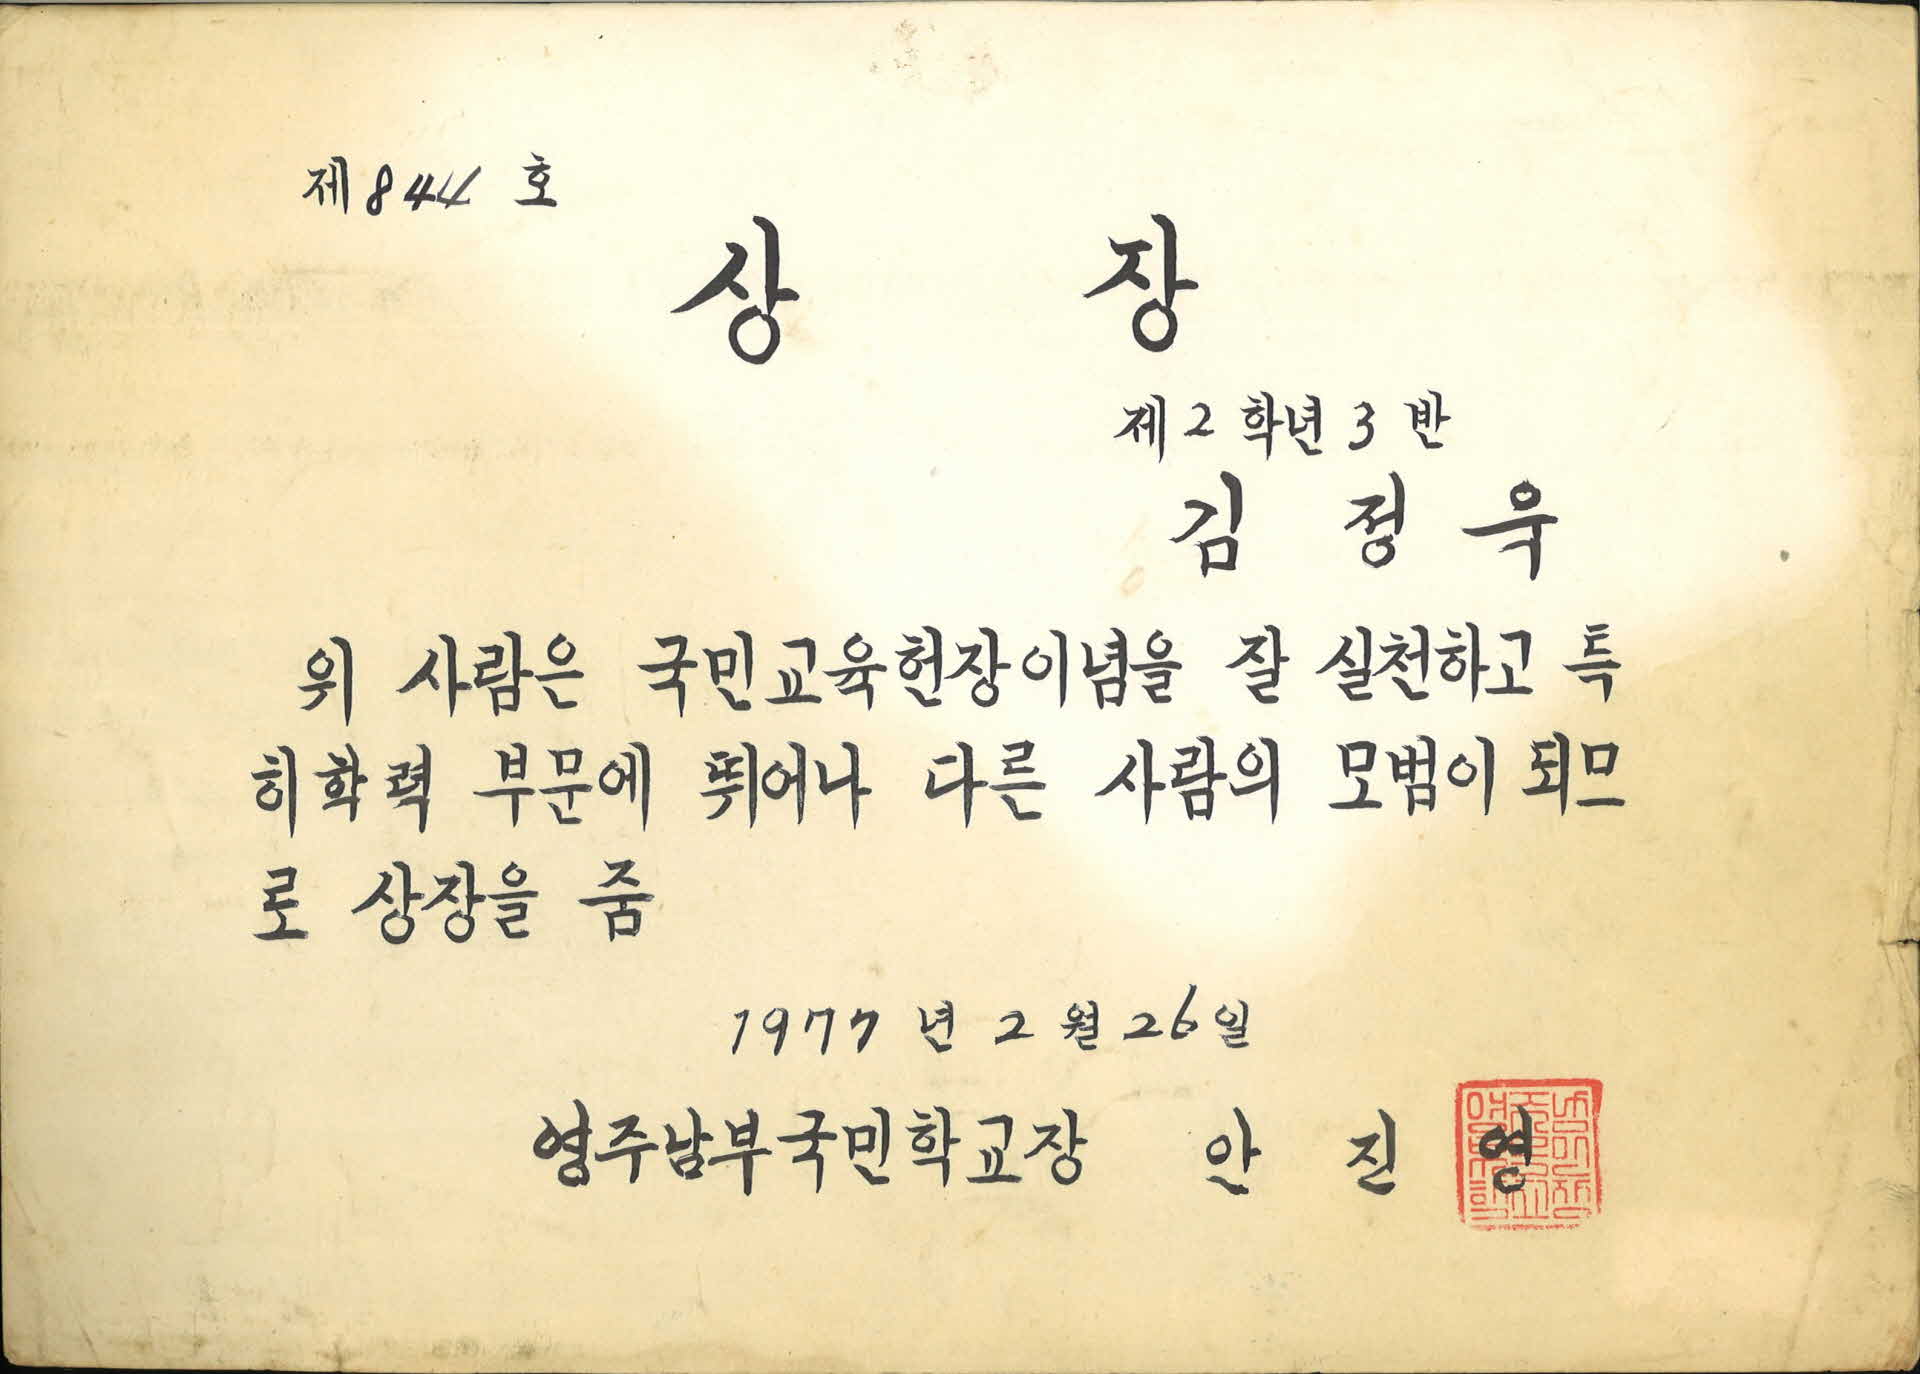 제 844 호
상 장
제 2 학년 3 반
김 정 욱
위 사람은 국민교육헌장이념을 잘 실천하고 특
히 학력 부문에 뛰어나 다른 사람의 모범이 되므
로 상장을 줌
1977 년 2 월 26 일
영주남부국민학교장 안 진 영